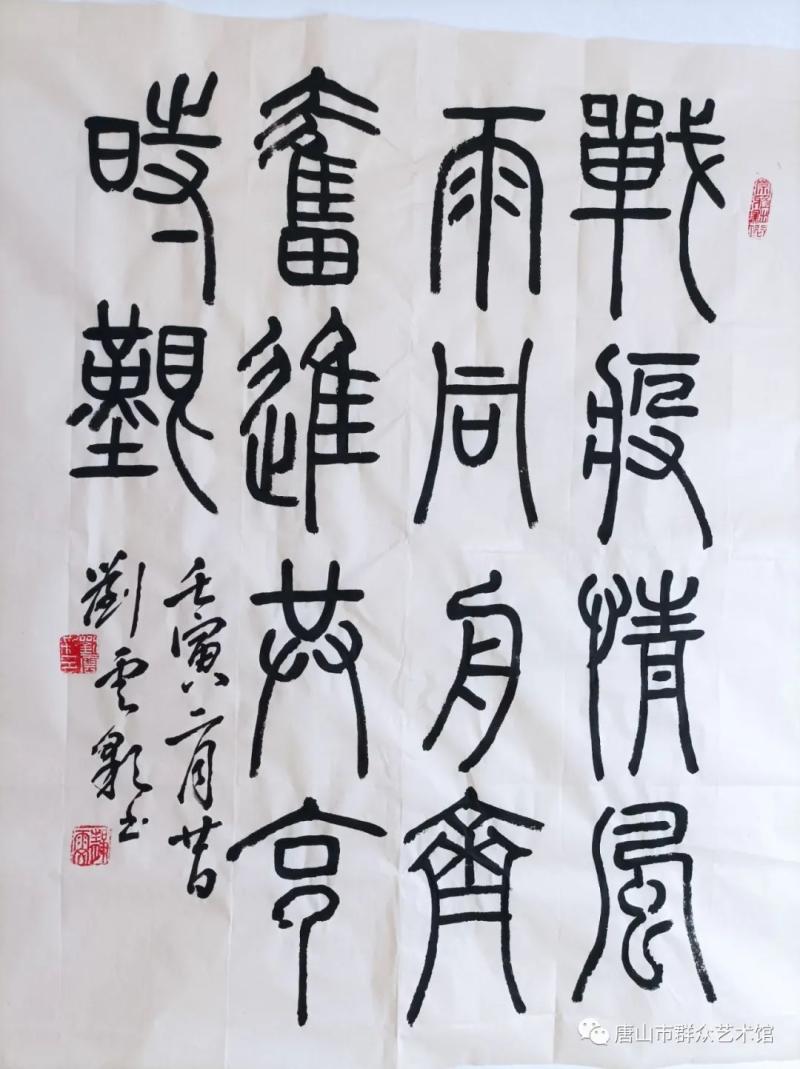 戰疫情風
雨同舟齊
奮進共克
時艱
壬寅二月廿日
劉雲書
唐山市群众艺术馆